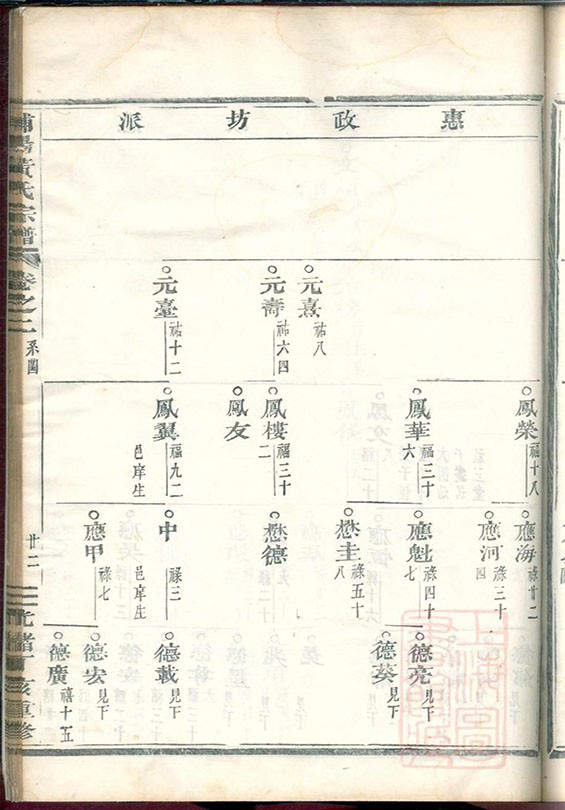 惠政坊派
元熹 祜八
元壽 祜六四
元臺 祜十二
鳳榮 福十八
鳳華 福三十六
鳳樓 福三十二
鳳友
鳳翼 福九二 邑庠生
應海 祿廿二
應河 祿三十四
應魁 祿四十七
懋圭 祿五十八
懋德
中 祿三 邑庠生
應甲 祿七
德亮 見下
德葵 見下
德載 見下
德宏 見下
德廣 禧十五
浦陽黃氏宗譜 卷之二 系圖 廿二 光緒丁亥重修